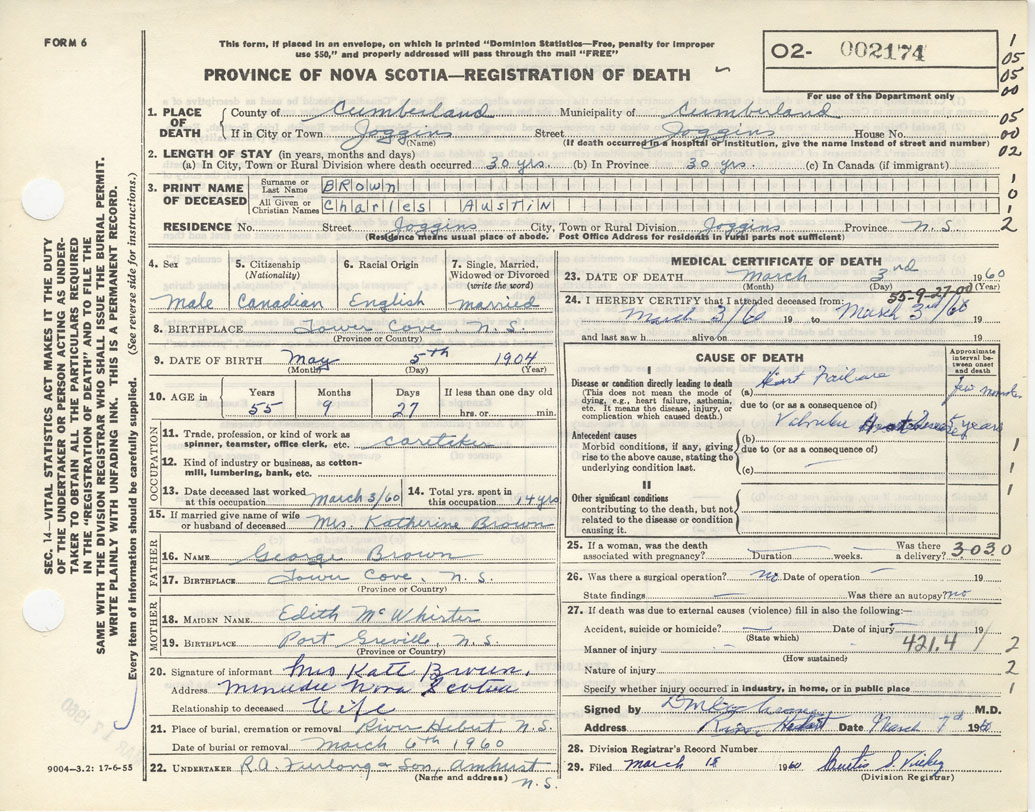 FORM 6
This form, if placed in an envelope, on which is printed "Dominion Statistics—Free, penalty for improper
use $50," and properly addressed will pass through the mail "FREE"
PROVINCE OF NOVA SCOTIA—REGISTRATION OF DEATH
02- 002174
For use of the Department only
1
05
05
00
05
00
02
1
0
1
2
SEC. 14—VITAL STATISTICS ACT MAKES IT THE DUTY
OF THE UNDERTAKER OR PERSON ACTING AS UNDER-
TAKER TO OBTAIN ALL THE PARTICULARS REQUIRED
IN THE "REGISTRATION OF DEATH" AND TO FILE THE
SAME WITH THE DIVISION REGISTRAR WHO SHALL ISSUE THE BURIAL PERMIT.
WRITE PLAINLY WITH UNFADING INK. THIS IS A PERMANENT RECORD.
Every item of information should be carefully supplied. (See reverse side for instructions.)
1. PLACE OF DEATH County of Cumberland Municipality of Cumberland
If in City or Town Joggins Street Joggins House No.
(Name) (If death occurred in a hospital or institution, give the name instead of street and number)
2. LENGTH OF STAY (in years, months and days)
(a) In City, Town or Rural Division where death occurred 30 yrs. (b) In Province 30 yrs. (c) In Canada (if immigrant)
3. PRINT NAME OF DECEASED Surname or Last Name BROWN
All Given or Christian Names Charles AUSTIN
RESIDENCE No. Street Joggins City, Town or Rural Division Joggins Province N.S.
(Residence means usual place of abode. Post Office Address for residents in rural parts not sufficient)
4. Sex Male
5. Citizenship (Nationality) Canadian
6. Racial Origin English
7. Single, Married, Widowed or Divorced (write the word) married
8. BIRTHPLACE Tower Cove N.S.
(Province or Country)
9. DATE OF BIRTH May 5th 1904
(Month) (Day) (Year)
10. AGE in Years 55 Months 9 Days 27 If less than one day hrs. or min.
OCCUPATION
11. Trade, profession, or kind of work as spinner, teamster, office clerk, etc. caretaker
12. Kind of industry or business, as cotton-mill, lumbering, bank, etc.
13. Date deceased last worked at this occupation March 3/60
14. Total yrs. spent in this occupation 14 yrs
15. If married give name of wife or husband of deceased Mrs. Katherine Brown
FATHER
16. NAME George Brown
17. BIRTHPLACE Tower Cove, N.S.
(Province or Country)
MOTHER
18. MAIDEN NAME Edith McWhirter
19. BIRTHPLACE Port Greville, N.S.
(Province or Country)
20. Signature of informant Mrs Kate Brown,
Address Minudie Nova Scotia
Relationship to deceased Wife
21. Place of burial, cremation or removal River Hebert, N.S.
Date of burial or removal March 6th 1960
22. UNDERTAKER R.A. Furlong & Son, Amherst
(Name and address) N.S.
9004-3.2: 17-6-55
MEDICAL CERTIFICATE OF DEATH
23. DATE OF DEATH March 3rd 1960
(Month) (Day) (Year)
55-9-27-00
24. I HEREBY CERTIFY that I attended deceased from:
March 3/60 19 to March 3rd/60 19
and last saw h alive on 19
CAUSE OF DEATH
Approximate interval between onset and death
I
Disease or condition directly leading to death (a) Heart Failure few months
(This does not mean the mode of dying, e.g., heart failure, asthenia, etc. It means the disease, injury, or complication which caused death.)
due to (or as a consequence of)
Antecedent causes
Morbid conditions, if any, giving rise to the above cause, stating the underlying condition last.
(b) Valvular 5 years
due to (or as a consequence of)
(c)
II
Other significant conditions
contributing to the death, but not related to the disease or condition causing it.
1
1
1
25. If a woman, was the death associated with pregnancy? Duration weeks. Was there a delivery? 3030
26. Was there a surgical operation? no Date of operation 19
State findings Was there an autopsy? no
27. If death was due to external causes (violence) fill in also the following:—
Accident, suicide or homicide? Date of injury 19
(State which) 421.4 1
Manner of injury 2
(How sustained)
Nature of injury 2
Specify whether injury occurred in industry, in home, or in public place 1
Signed by M.D.
Address River Hebert Date March 7th 1960
28. Division Registrar's Record Number
29. Filed March 18 1960 Curtis S. Vickery
(Division Registrar)
MAR 17 1960